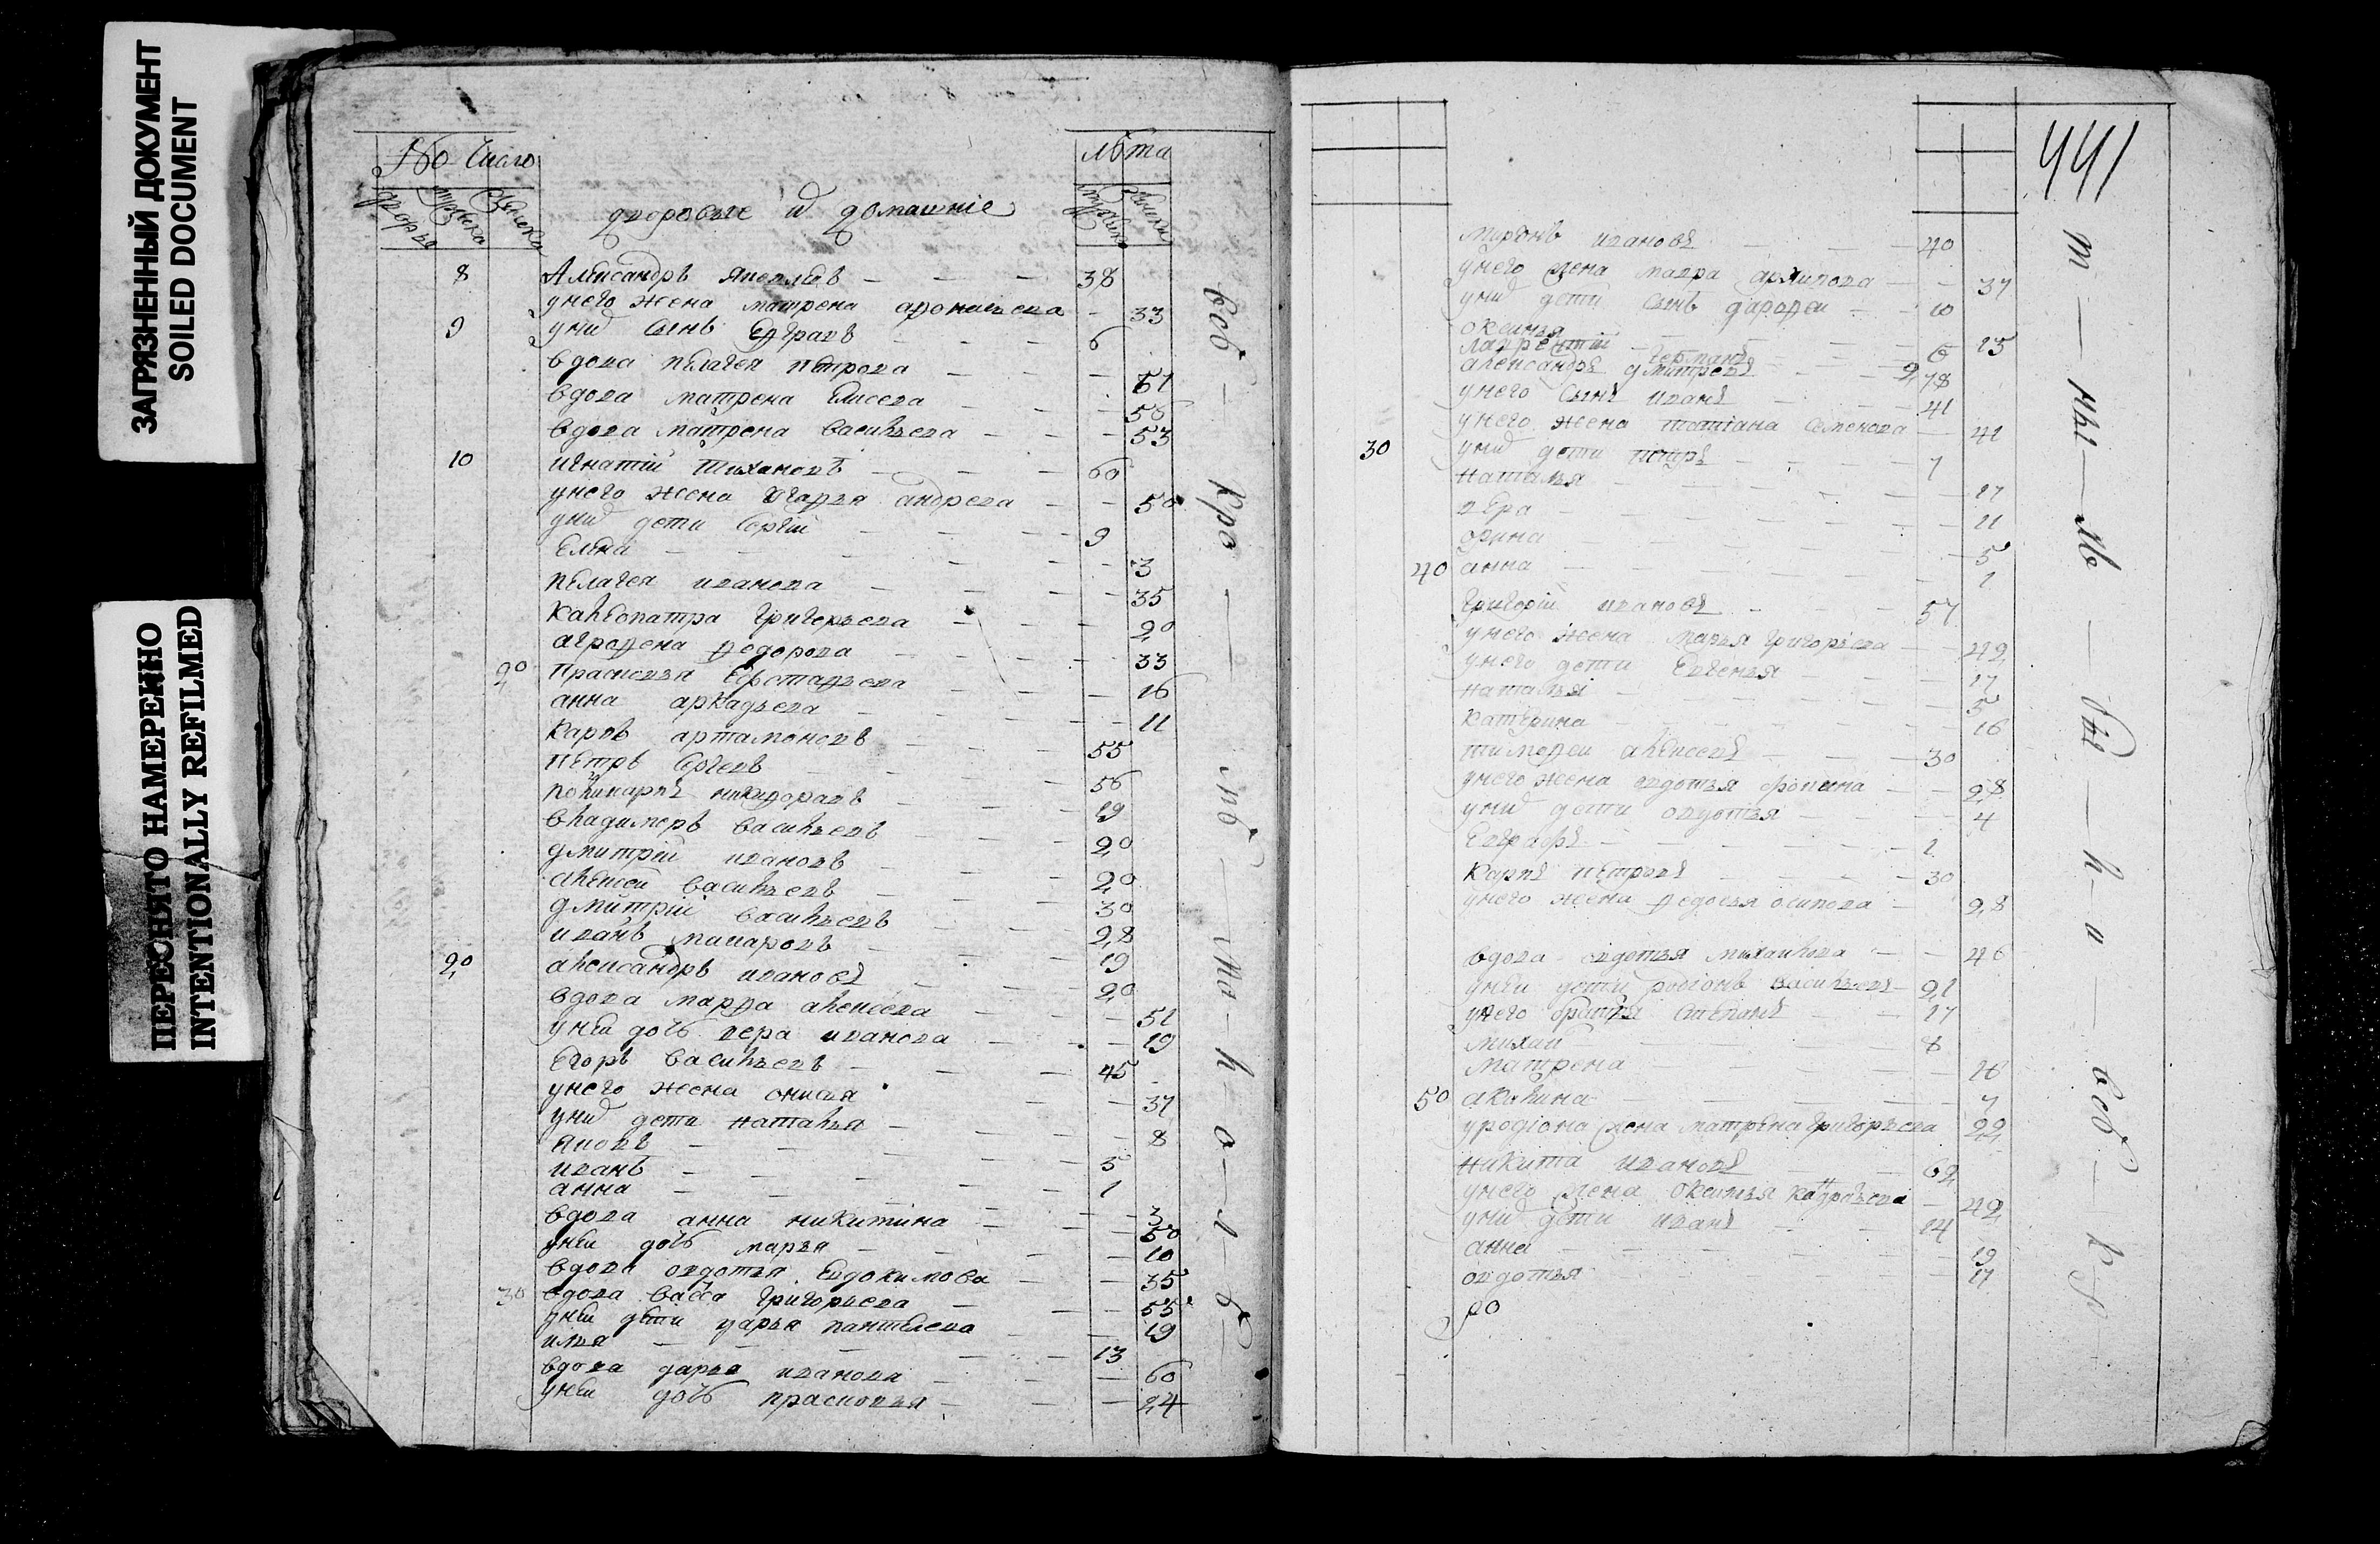 ЗАГРЯЗНЕННЫЙ ДОКУМЕНТ
SOILED DOCUMENT
ПЕРЕСНЯТО НАМЕРЕННО
INTENTIONALLY REFILMED
Число лѣта
дворовые и домашнiе
8 Александръ Яковлевъ — — — 38
унего жена матрена — 33
9 уних сынъ Евграѳъ — — — 6
вдова пелагея петрова — — — 61
вдова матрена Елисева — — — 56
вдова матрена васильева — — — 53
10 игнатiй Тихановъ — — — 60
унего жена андрева — — 50
уних дети Сергiй — — — 9
Елена — — — 3
пелагея иванова — — — 35
Калеопатра Григорьева — — — 20
аграѳена ѳедорова — — — 33
20 Прасковья Евстаѳьева — — — 16
анна аркадьева — — — 11
Карпъ артамоновъ — — — 55
петръ Сергевъ — — — 56
поликарпъ никиѳоравъ — — — 19
владимеръ васильевъ — — — 20
дмитрiй ивановъ — — — 20
алексей васильевъ — — — 30
дмитрiй васильевъ — — — 28
иванъ макаровъ — — — 19
20 александръ ивановъ — — — 20
вдова марѳа алексева — — — 51
уней дочь вера иванова — — — 19
Егоръ васильевъ — — — 45
унего жена онисья — — 37
уних дети наталья — — — 8
яковъ — — — 5
иванъ — — — 1
анна — — — 3
вдова анна никитина — — — 50
уней дочь марья — — — 10
вдова овдотья Евдокимова — — 35
30 вдова васса григорьева — — — 55
уней дети дарья пантелева — — 19
илья — — — 13
вдова дарья иванова — — — 60
уней дочь прасковья — — — 24
всѣ — кро — — мѣ — ма — л — о — л — ѣ —
441
миронъ ивановъ — — — 40
унего жена мавра архипова — — 37
уних дети сынъ дароѳеи — — 10
оксинья — — — 15
лаврентiй — — — 6
александръ дмитревъ — — — 78
унего сынъ иванъ — — 41
унего жена татiана семенова — 41
30 уних дети петръ — — — 7
наталья — — — 17
вера — — — 11
орина — — — 5
40 анна — — — 1
григорiй ивановъ — — — 57
унего жена марья григорьева — — 42
унего дети Евгенья — — — 17
наталья — — — 5
катерина — — — 16
тимоѳеи алексевъ — — — 30
унего жена овдотья — — 28
уних дети овдотья — — — 4
Евграѳъ — — — 1
карпъ петровъ — — — 30
унего жена ѳедосья осипова — 28
вдова овдотья михаилова — — 46
уней дети родiонъ васильевъ — 21
унего братья степанъ — — 17
михаи — — — 8
матрена — — — 16
50 акилина — — — 7
уродiона жена матрена григорьева 22
никита ивановъ — — — 62
унего жена оксинья — 42
уних дети иванъ — — 14
анна — — — 19
овдотья — — — 17
ро
т — ны — ль — вы — л — и — всѣ — кр —